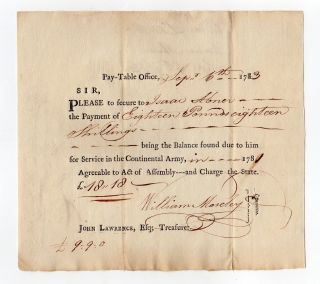 Pay-Table Office, Sepr 6th 1783
SIR,
PLEASE to secure to Isaac Abner
the Payment of Eighteen Pounds eighteen
Shillings
being the Balance found due to him
for Service in the Continental Army, in 1781
Agreeable to Act of Assembly—and Charge the State.
£ 18-18
William Moseley
JOHN LAWRENCE, Esq; Treasurer.
£ 9.9.0